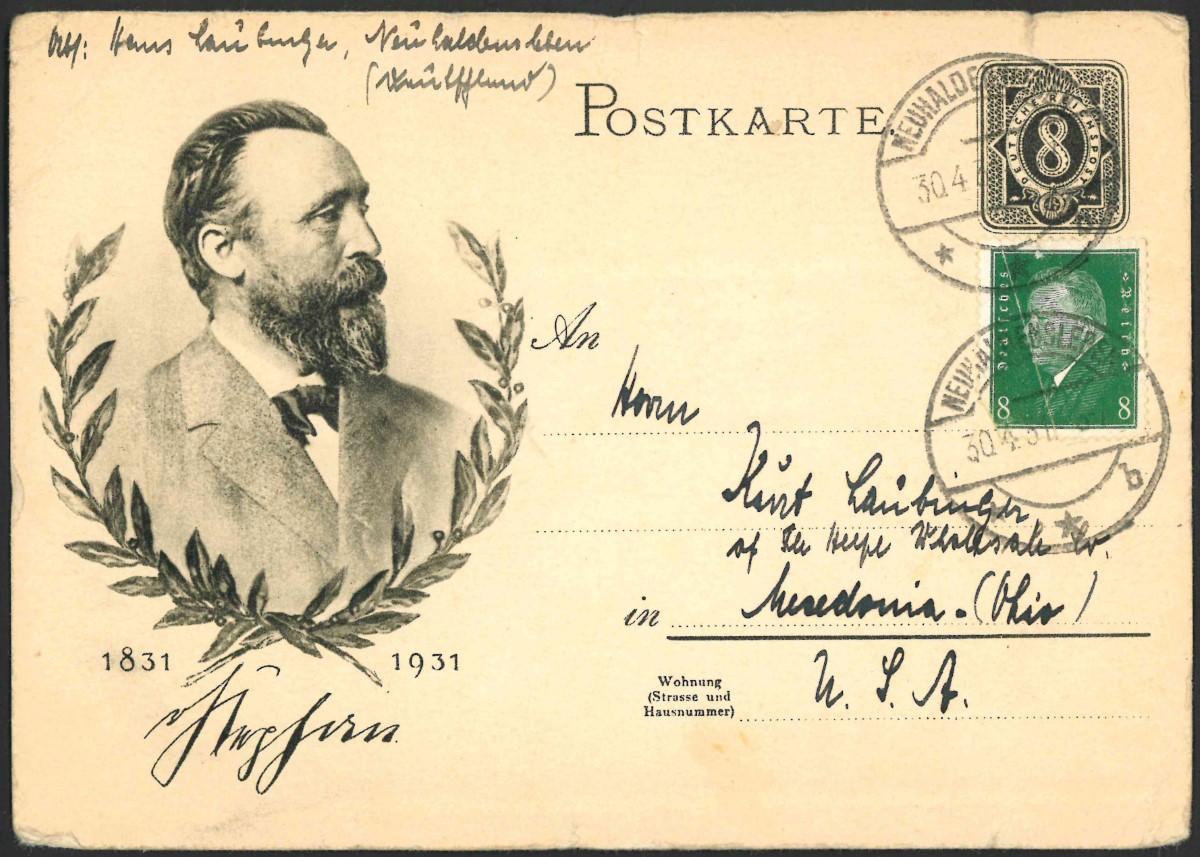 Abs: Hans Laubinger, Neuhaldensleben
(Deutschland)
POSTKARTE
NEUHALDE
30.4.3
DEUTSCHE REICHSPOST
8
Deutsches Reich
8 8
NEUHALDENSLEB
30.4.31
b
An
Herrn
Kurt Laubinger
of The Wholesale Co.
in Macedonia - (Ohio)
U. S. A.
Wohnung
(Strasse und
Hausnummer)
1831 1931
vStephan